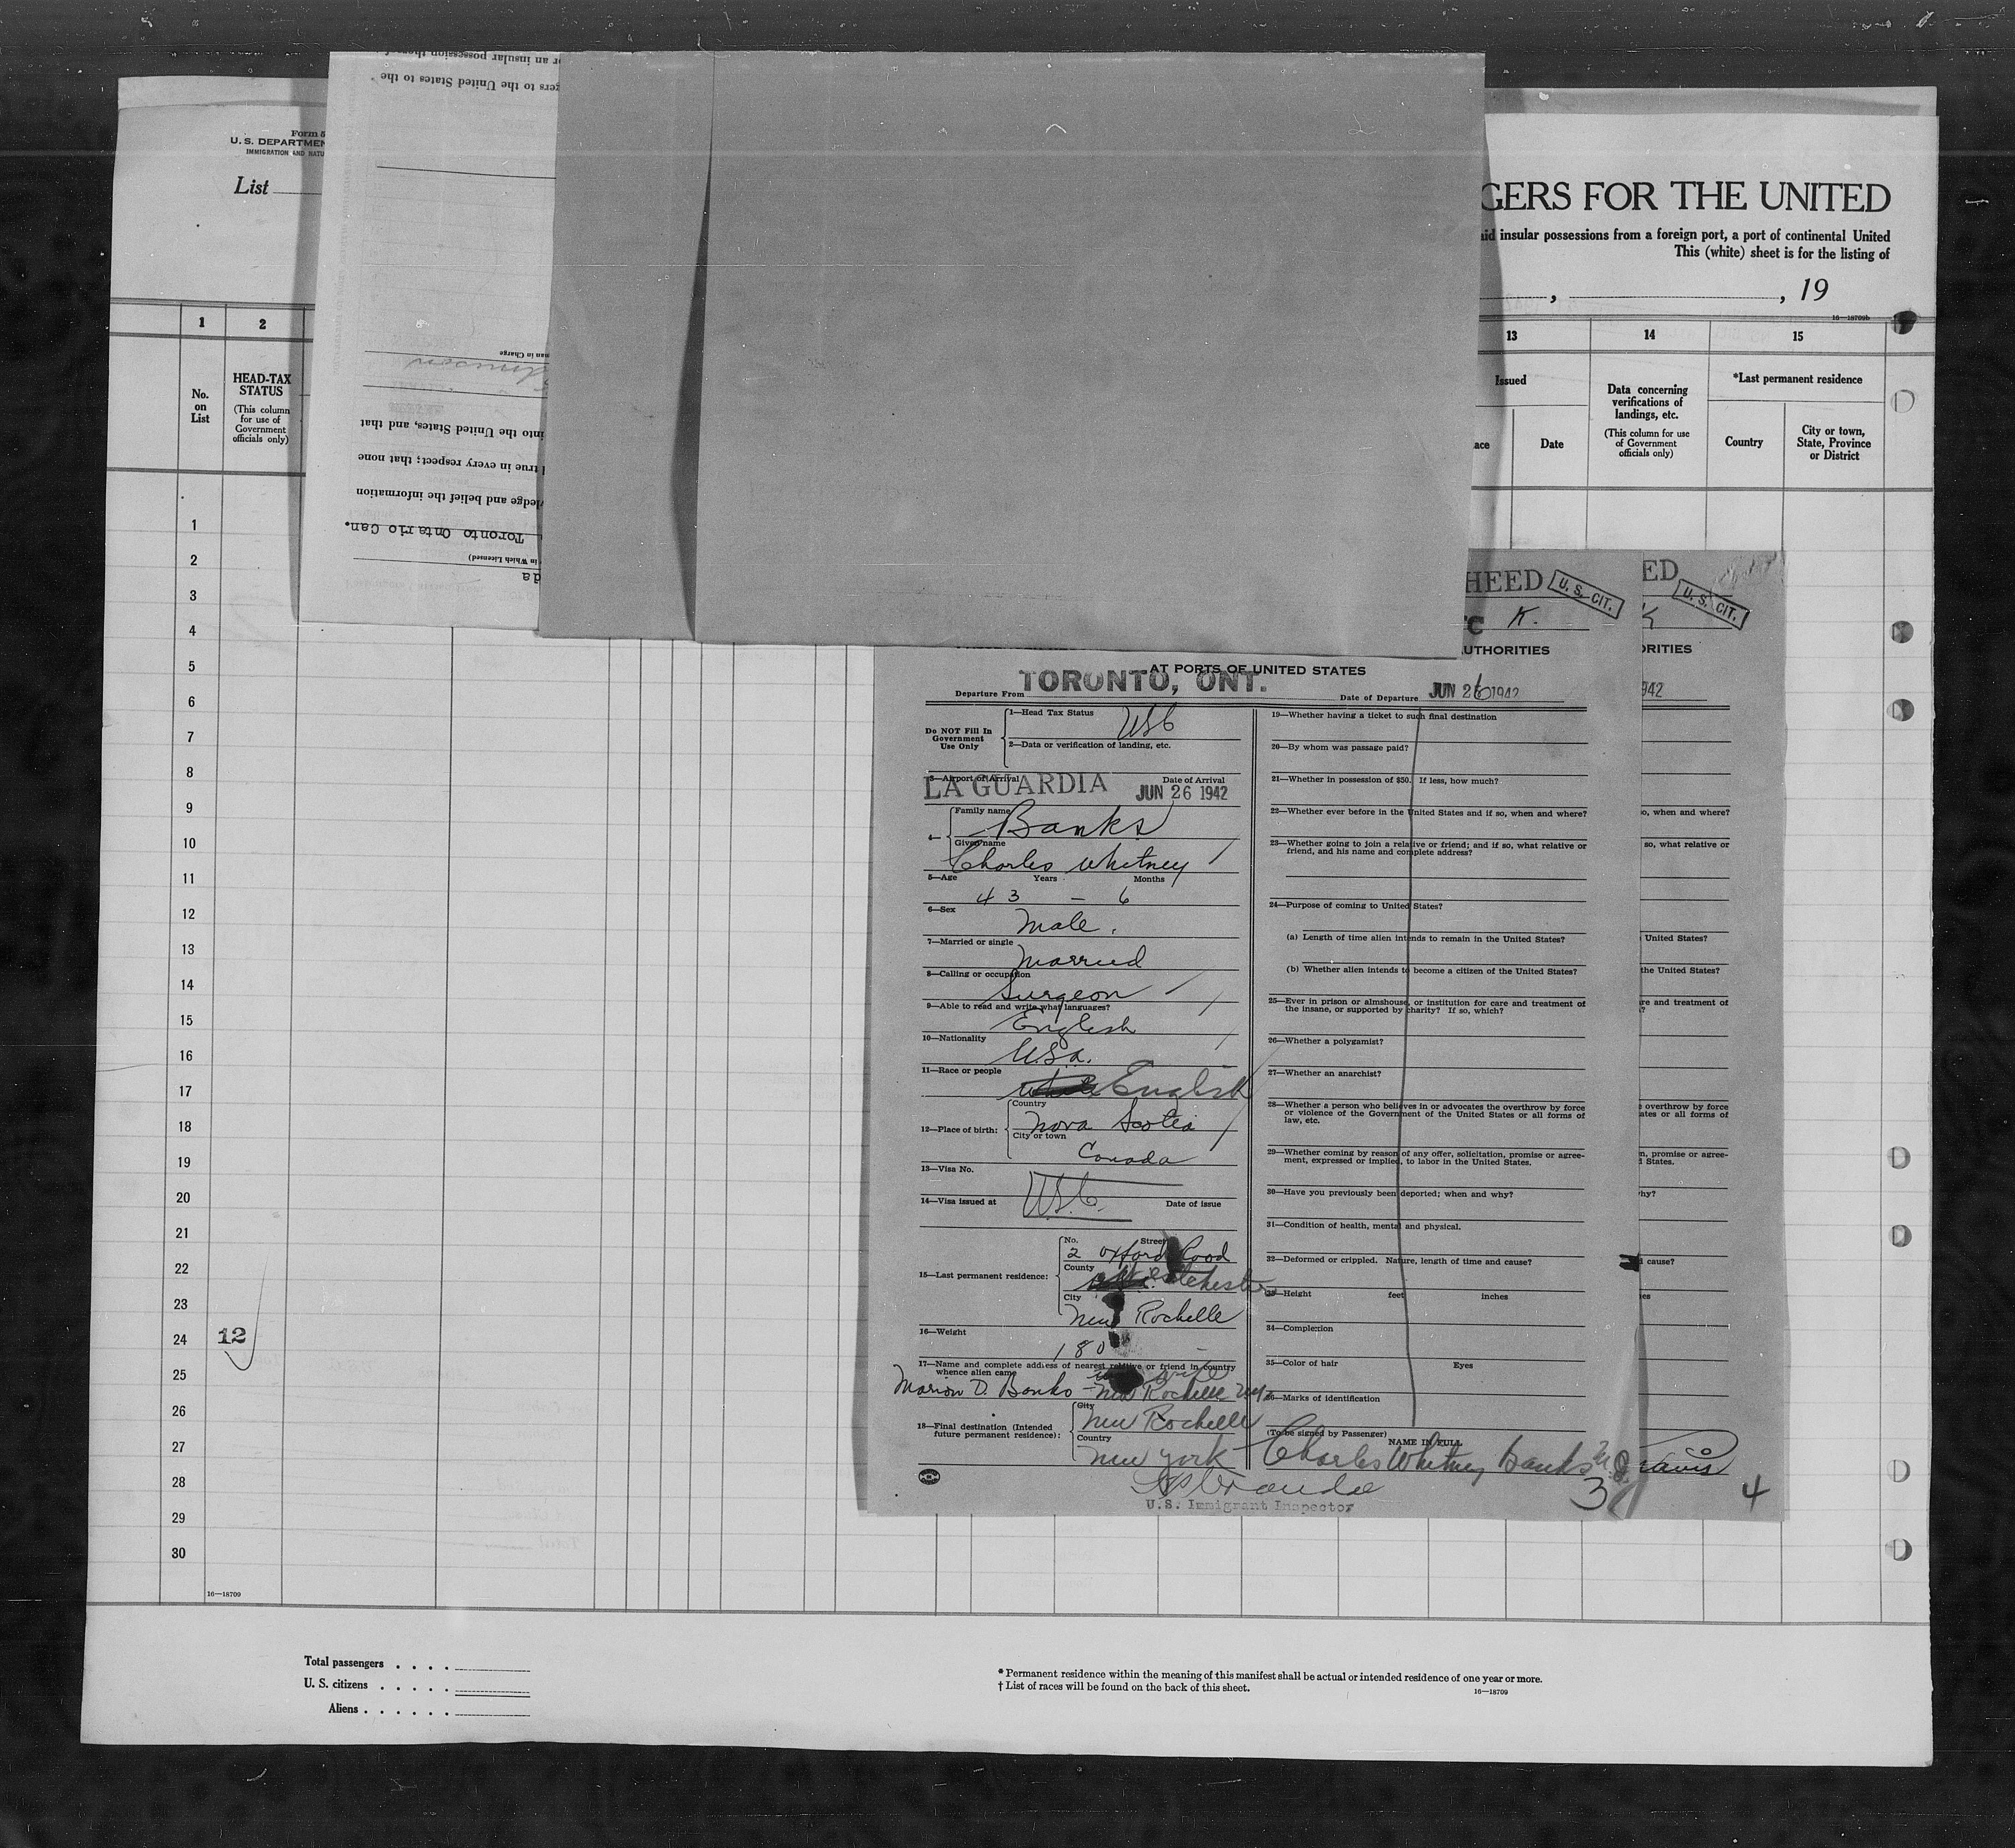 Form 5
U. S. DEPARTMEN
IMMIGRATION AND NATU
List
or an insular possession thereof
gers to the United States to the
man in Charge
into the United States, and that
true in every respect; that none
ledge and belief the information
Toronto Ontario Can.
in Which Licensed)
da
GERS FOR THE UNITED
aid insular possessions from a foreign port, a port of continental United
This (white) sheet is for the listing of
, , 19
16—18709b
1 2 13 14 15
No. on List
HEAD-TAX STATUS
(This column for use of Government officials only)
Issued
ace Date
Data concerning verifications of landings, etc.
(This column for use of Government officials only)
*Last permanent residence
Country
City or town, State, Province or District
1
2
3
4
5
6
7
8
9
10
11
12
13
14
15
16
17
18
19
20
21
22
23
24 12
25
26
27
28
29
30
16—18709
HEED U. S. CIT.
K.
UTHORITIES
ED U. S. CIT.
ORITIES
942
AT PORTS OF UNITED STATES
Departure From TORONTO, ONT. Date of Departure JUN 26 1942
Do NOT Fill In Government Use Only
1—Head Tax Status USC
2—Data or verification of landing, etc.
3—Airport of Arrival LA GUARDIA Date of Arrival JUN 26 1942
4— Family name Banks
Given name Charles Whitney
5—Age Years Months
43 — 6
6—Sex Male.
7—Married or single Married
8—Calling or occupation Surgeon
9—Able to read and write what languages? English
10—Nationality U.S.A.
11—Race or people English
12—Place of birth: Country Nova Scotia
City or town Canada
13—Visa No.
14—Visa issued at U.S.C. Date of issue
15—Last permanent residence: No. Street
2 Oxford Road
County Westchester
City New Rochelle
16—Weight 180
17—Name and complete address of nearest relative or friend in country whence alien came wife
Marion D. Banks - New Rochelle NY
18—Final destination (Intended future permanent residence): City New Rochelle
Country New York
19—Whether having a ticket to such final destination
20—By whom was passage paid?
21—Whether in possession of $50. If less, how much?
22—Whether ever before in the United States and if so, when and where?
23—Whether going to join a relative or friend; and if so, what relative or
friend, and his name and complete address?
24—Purpose of coming to United States?
(a) Length of time alien intends to remain in the United States?
(b) Whether alien intends to become a citizen of the United States?
25—Ever in prison or almshouse, or institution for care and treatment of
the insane, or supported by charity? If so, which?
26—Whether a polygamist?
27—Whether an anarchist?
28—Whether a person who believes in or advocates the overthrow by force
or violence of the Government of the United States or all forms of
law, etc.
29—Whether coming by reason of any offer, solicitation, promise or agree-
ment, expressed or implied, to labor in the United States.
30—Have you previously been deported; when and why?
31—Condition of health, mental and physical.
32—Deformed or crippled. Nature, length of time and cause?
33—Height feet inches
34—Complexion
35—Color of hair Eyes
36—Marks of identification
(To be signed by Passenger) NAME IN FULL
Charles Whitney Banks M.D.
U.S. Immigrant Inspector
3
so, when and where?
so, what relative or
United States?
the United States?
re and treatment of
?
e overthrow by force
ates or all forms of
n, promise or agree-
d States.
hy?
d cause?
es
4
Total passengers . . . .
U. S. citizens . . . . .
Aliens . . . . . .
* Permanent residence within the meaning of this manifest shall be actual or intended residence of one year or more.
† List of races will be found on the back of this sheet.
16—18709